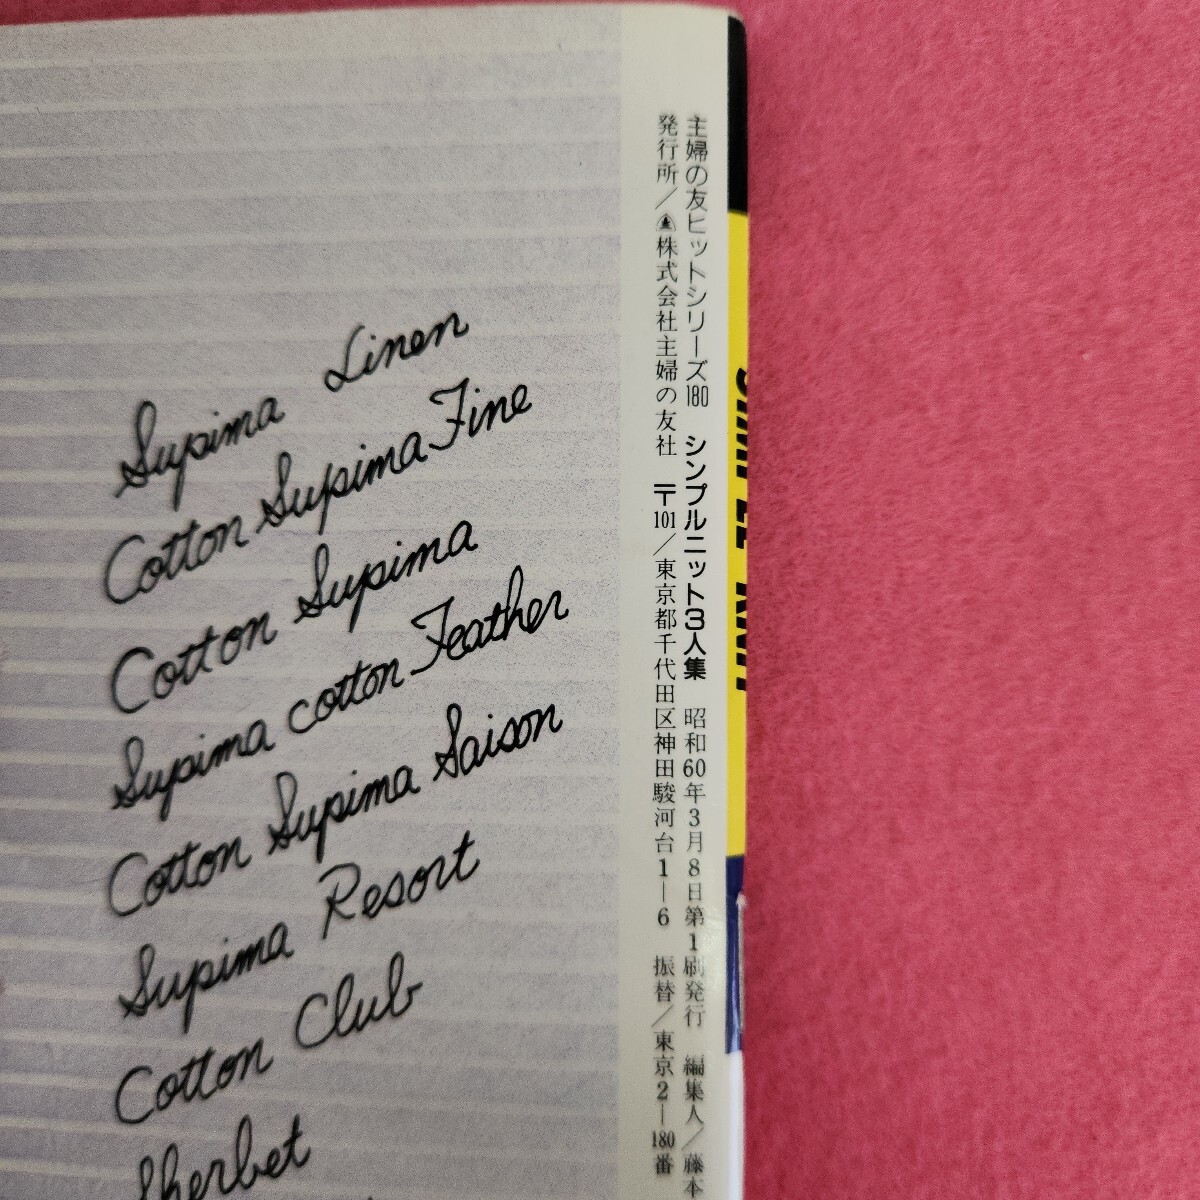 Supima Linen
Cotton Supima Fine
Cotton Supima
Supima cotton Feather
Cotton Supima Saison
Supima Resort
Cotton Club
Sherbet
主婦の友ヒットシリーズ180 シンプルニット3人集 昭和60年3月8日第1刷発行 編集人/藤本
発行所/株式会社主婦の友社 〒101/東京都千代田区神田駿河台1-6 振替/東京2-180番